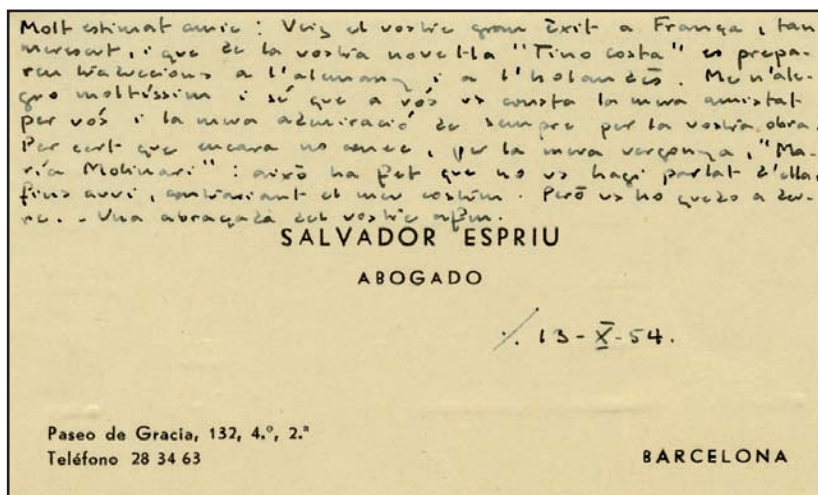 Molt estimat amic: Veig el vostre gran èxit a França, tan
merescut, i que de la vostra novel·la "Tino Costa" es prepa-
ren traduccions a l'alemany i a l'holandès. Me n'ale-
gro moltíssim i sé que a vós us consta la meva amistat
per vós i la meva admiració de sempre per la vostra obra.
Per cert que encara no conec, per la meva vergonya, "Ma-
ría Molinari": això ha fet que no us hagi parlat d'ella,
fins avui, contrariant el meu costum. Però us ho quedo a deu-
re. - Una abraçada del vostre afm.
SALVADOR ESPRIU
ABOGADO
13-X-54.
Paseo de Gracia, 132, 4.º, 2.ª
Teléfono 28 34 63
BARCELONA